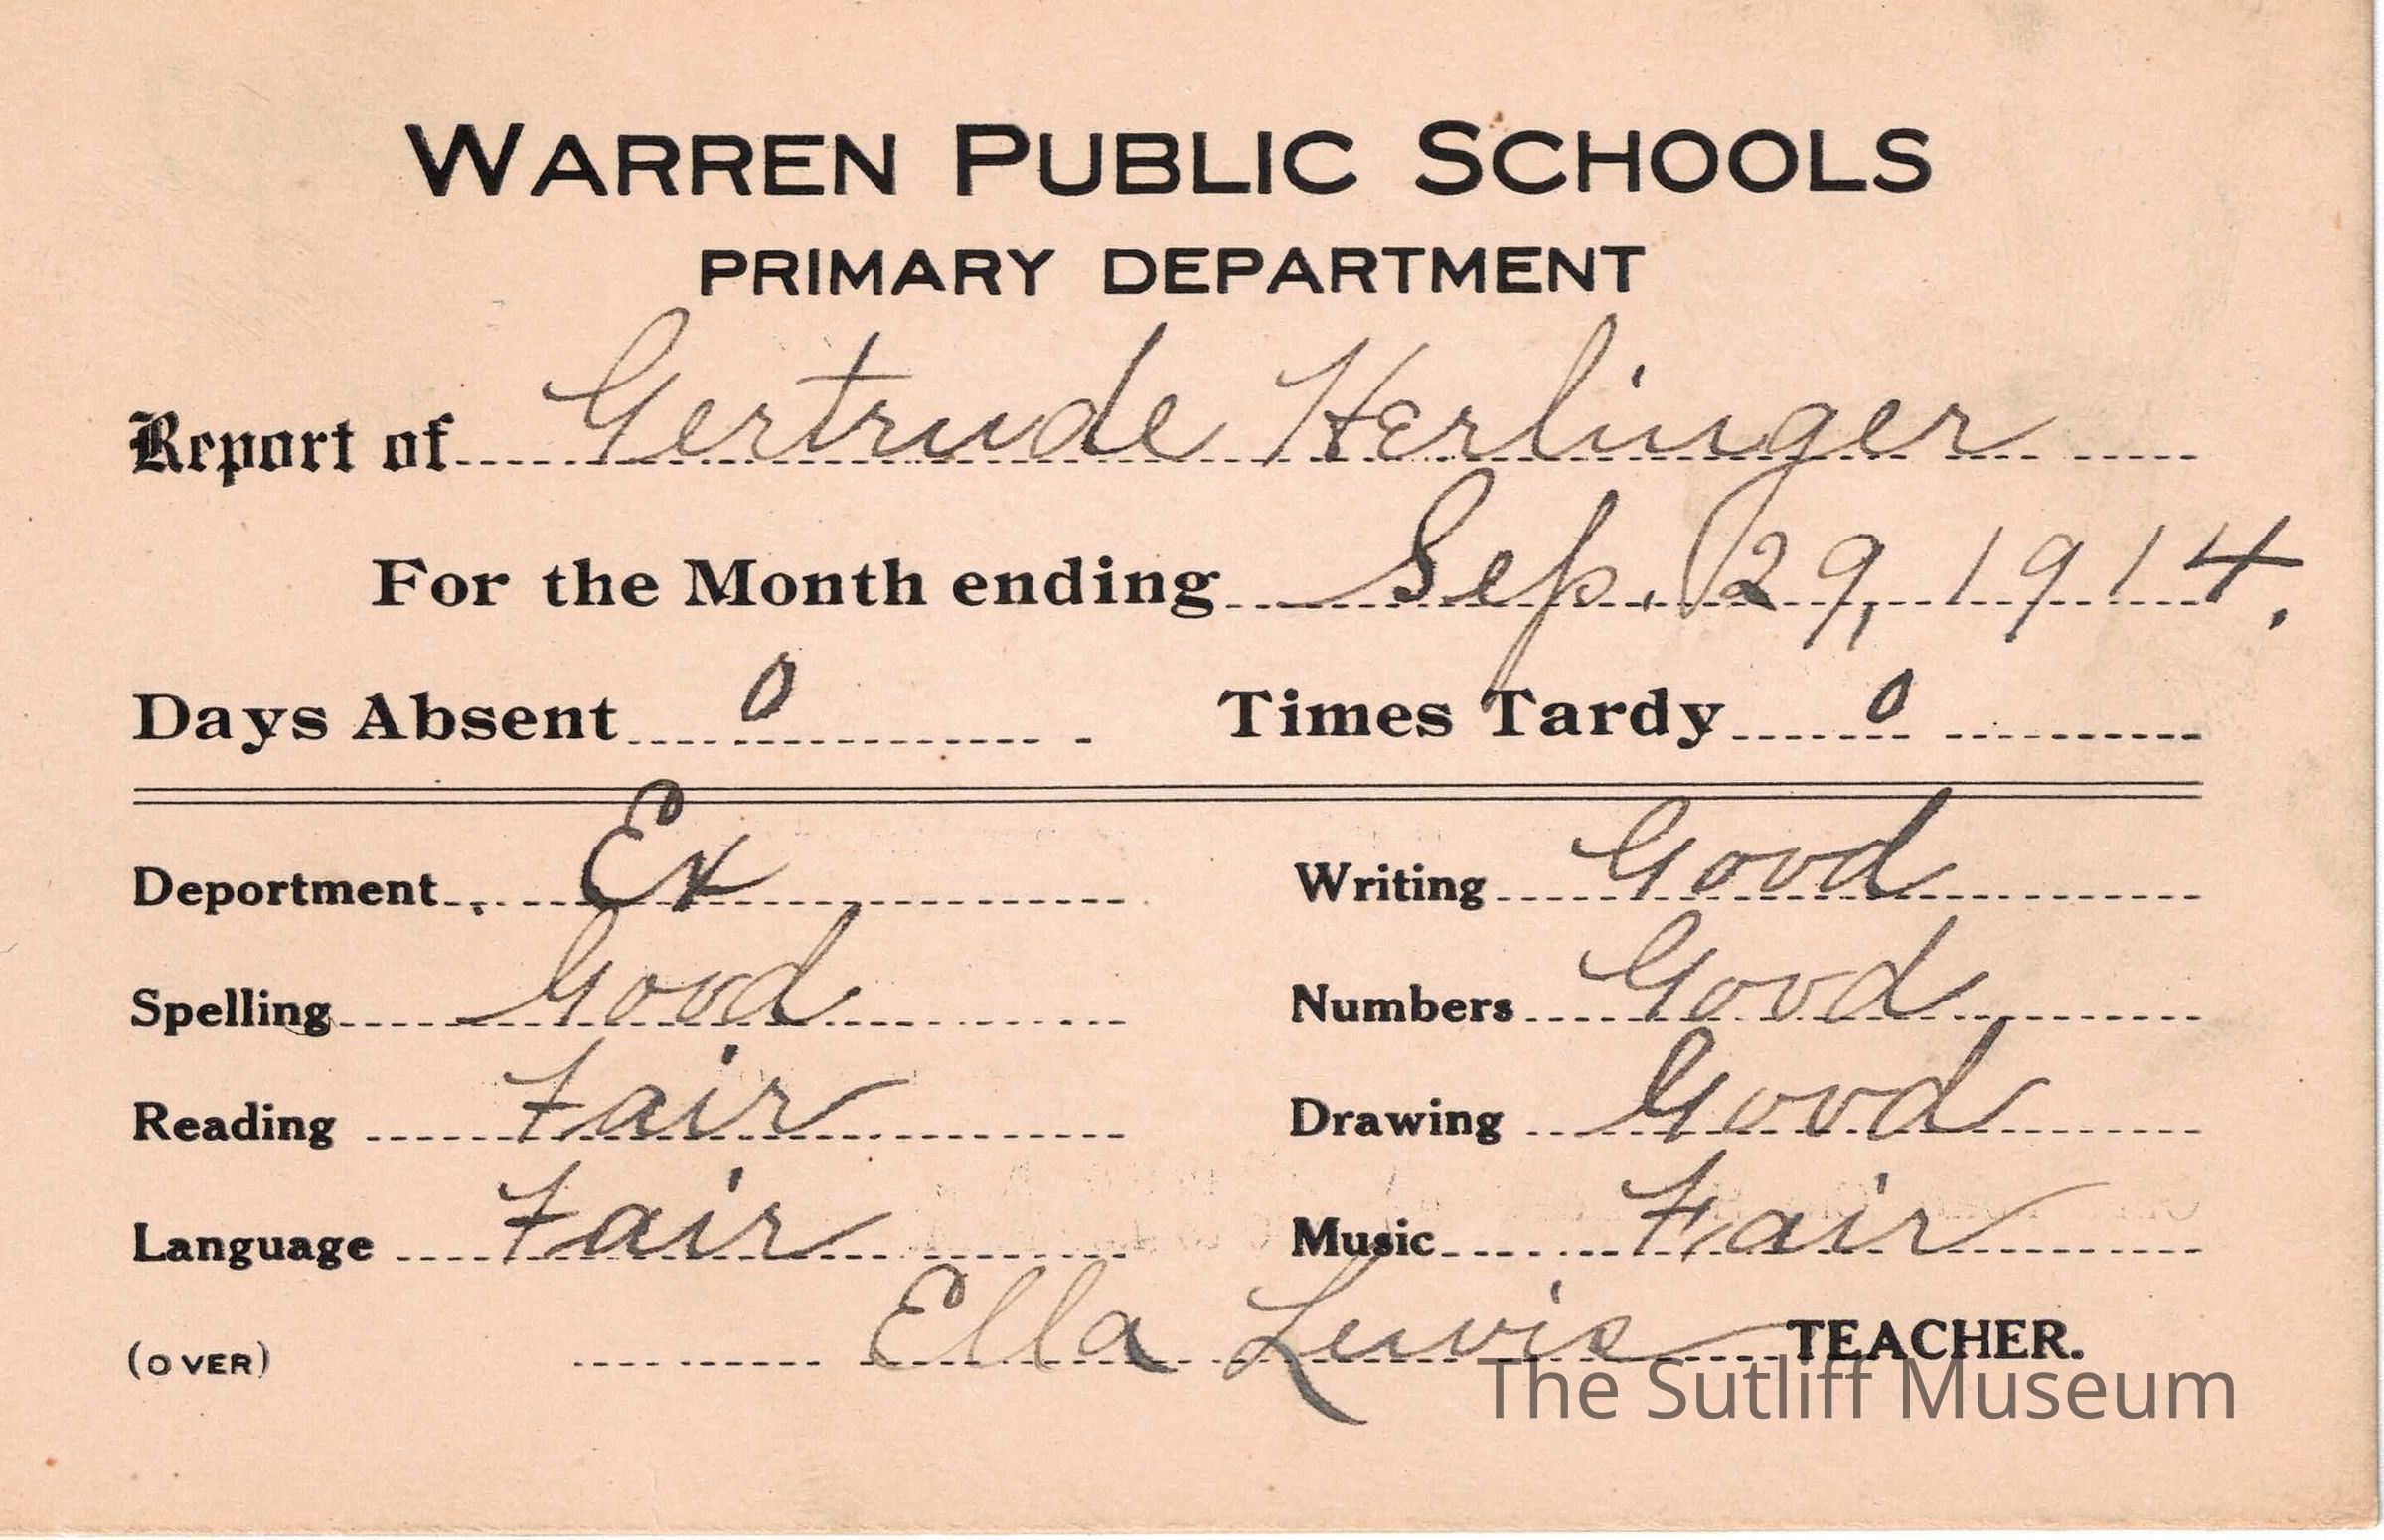 WARREN PUBLIC SCHOOLS
PRIMARY DEPARTMENT
Report of Gertrude Herlinger
For the Month ending Sep. 29, 1914.
Days Absent 0 Times Tardy 0
Deportment Ex Writing Good
Spelling Good Numbers Good
Reading Fair Drawing Good
Language Fair Music Fair
(OVER) Ella Lewis TEACHER.
The Sutliff Museum